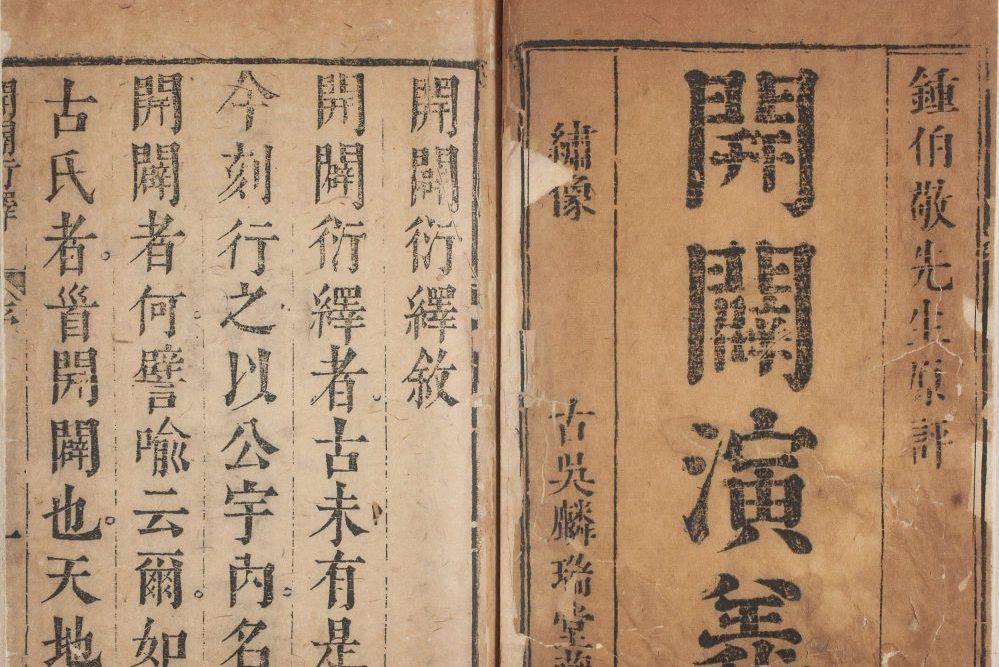 鍾伯敬先生原評
開闢演義
繡像 古吳麟瑞堂
開闢衍繹敘
開闢衍繹者。古未有是
今刻行之以公宇內。名
開闢者何。譬喻云爾。如
古氏者。首開闢也。天地
開闢衍繹 一